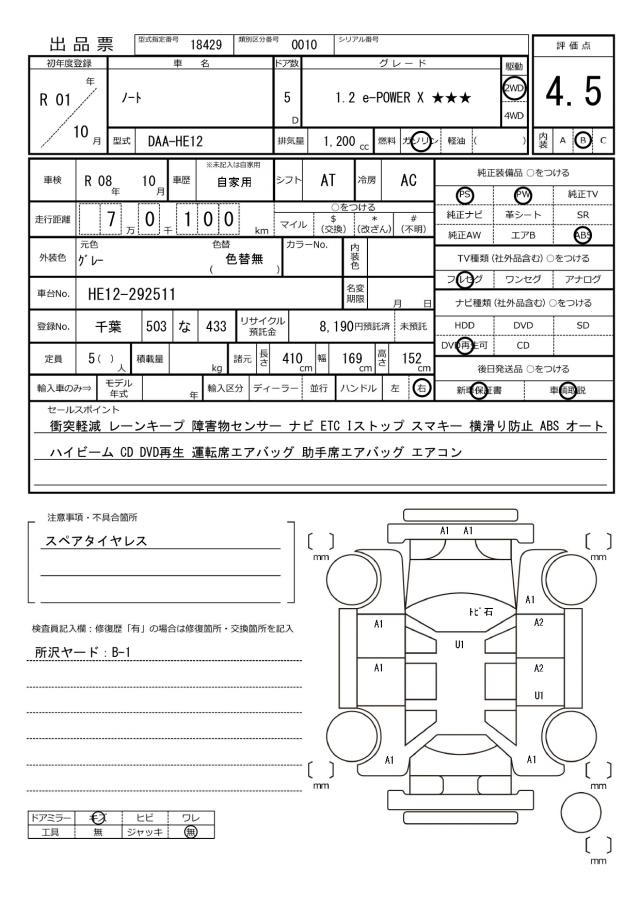 出品票 型式指定番号 18429 類別区分番号 0010 シリアル番号
評価点
4.5
内装 A B C
初年度登録 車名 ドア数 グレード 駆動
R 01 年 10 月
ノート 5 D 1.2 e-POWER X ★★★ 2WD 4WD
型式 DAA-HE12 排気量 1,200 cc 燃料 ガソリン 軽油 ( )
車検 R 08 年 10 月 車歴 ※未記入は自家用 自家用 シフト AT 冷房 AC
走行距離 7 万 0 千 1 0 0 km
○をつける
マイル $ (交換) * (改ざん) # (不明)
外装色 元色 グレー 色替 ( 色替無 ) カラーNo. 内装色
車台No. HE12-292511 名変期限 月 日
登録No. 千葉 503 な 433 リサイクル預託金 8,190円預託済 未預託
定員 5 ( ) 人 積載量 kg 諸元 長さ 410 cm 幅 169 cm 高さ 152 cm
輸入車のみ⇒ モデル年式 年 輸入区分 ディーラー 並行 ハンドル 左 右
純正装備品 ○をつける
PS PW 純正TV
純正ナビ 革シート SR
純正AW エアB ABS
TV種類 (社外品含む) ○をつける
フルセグ ワンセグ アナログ
ナビ種類 (社外品含む) ○をつける
HDD DVD SD
DVD再生可 CD
後日発送品 ○をつける
新車保証書 車輌取説
セールスポイント
衝突軽減 レーンキープ 障害物センサー ナビ ETC Iストップ スマキー 横滑り防止 ABS オート
ハイビーム CD DVD再生 運転席エアバッグ 助手席エアバッグ エアコン
注意事項・不具合箇所
スペアタイヤレス
検査員記入欄：修復歴「有」の場合は修復箇所・交換箇所を記入
所沢ヤード：B-1
ドアミラー キズ ヒビ ワレ
工具 無 ジャッキ 無
A1 A1
mm
mm
A1
トビ石
A1
A2
U1
A1
A2
U1
A1
A1
mm
mm
mm